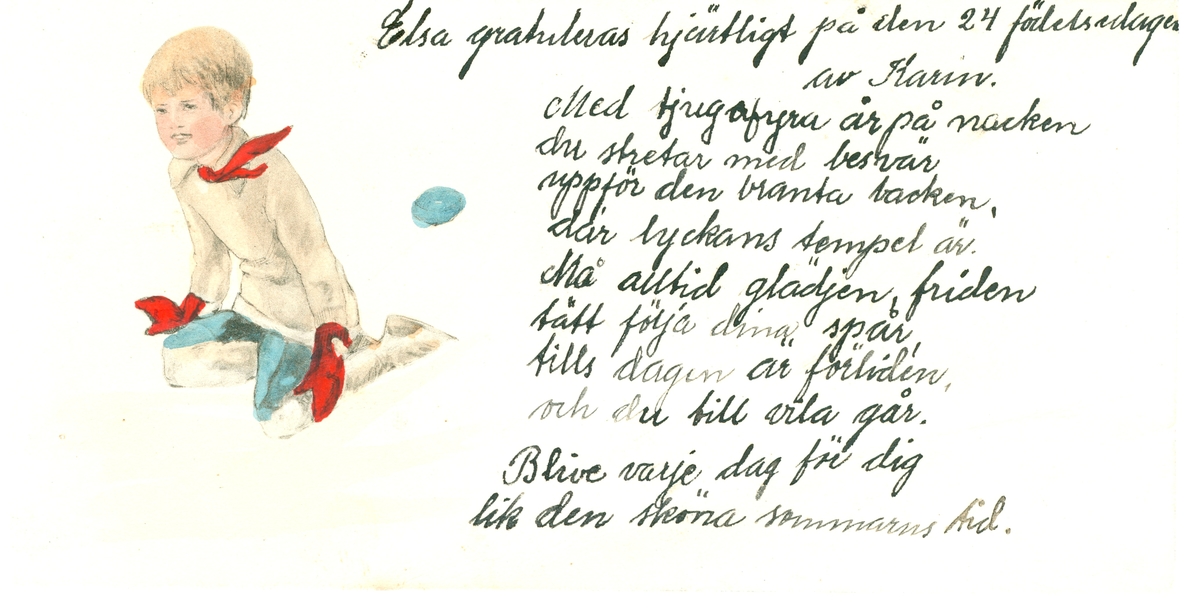 Elsa gratuleras hjärtligt på den 24 födelsedagen
av Karin.
Med tjugofyra år på nacken
du stretar med besvär
uppför den branta backen,
där lyckans tempel är.
Må alltid glädjen, friden
tätt följa dina spår,
tills dagen är förliden,
och du till vila går.
Blive varje dag för dig
lik den sköna sommarns tid.